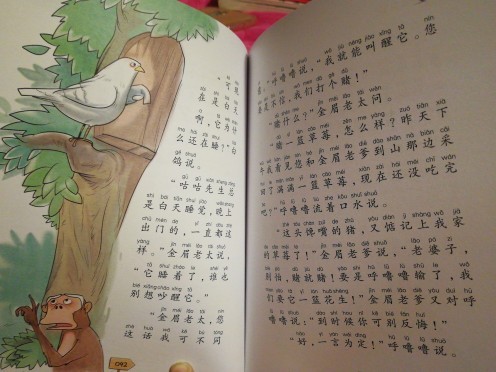 “可现
在是白天
啊，它为什
么还在睡？”白
鸽说。
“咕咕先生
是白天睡觉，晚上
出门的，一直都这
样。”金眉老太说，
“它睡着了，谁也
别想吵醒它。”
“金眉老太，您
这话我可不同
092
意。”呼噜噜说，“我就能叫醒它。您
要是不信，我们打个赌！”
“赌什么？”金眉老太问。
“赌一篮草莓，怎么样？昨天下
午我看见您和金眉老爹到山那边采
了满满一篮草莓，现在还没吃完
吧？”呼噜噜流着口水说。
“这头馋嘴的猪，又惦记上我家
的草莓了！”金眉老爹说，“老婆子，
别怕，赌就赌！要是呼噜噜输了，我
们要它一篮花生！”金眉老爹又对呼
噜噜说：“到时候你可别反悔！”
“好，一言为定！”呼噜噜说。